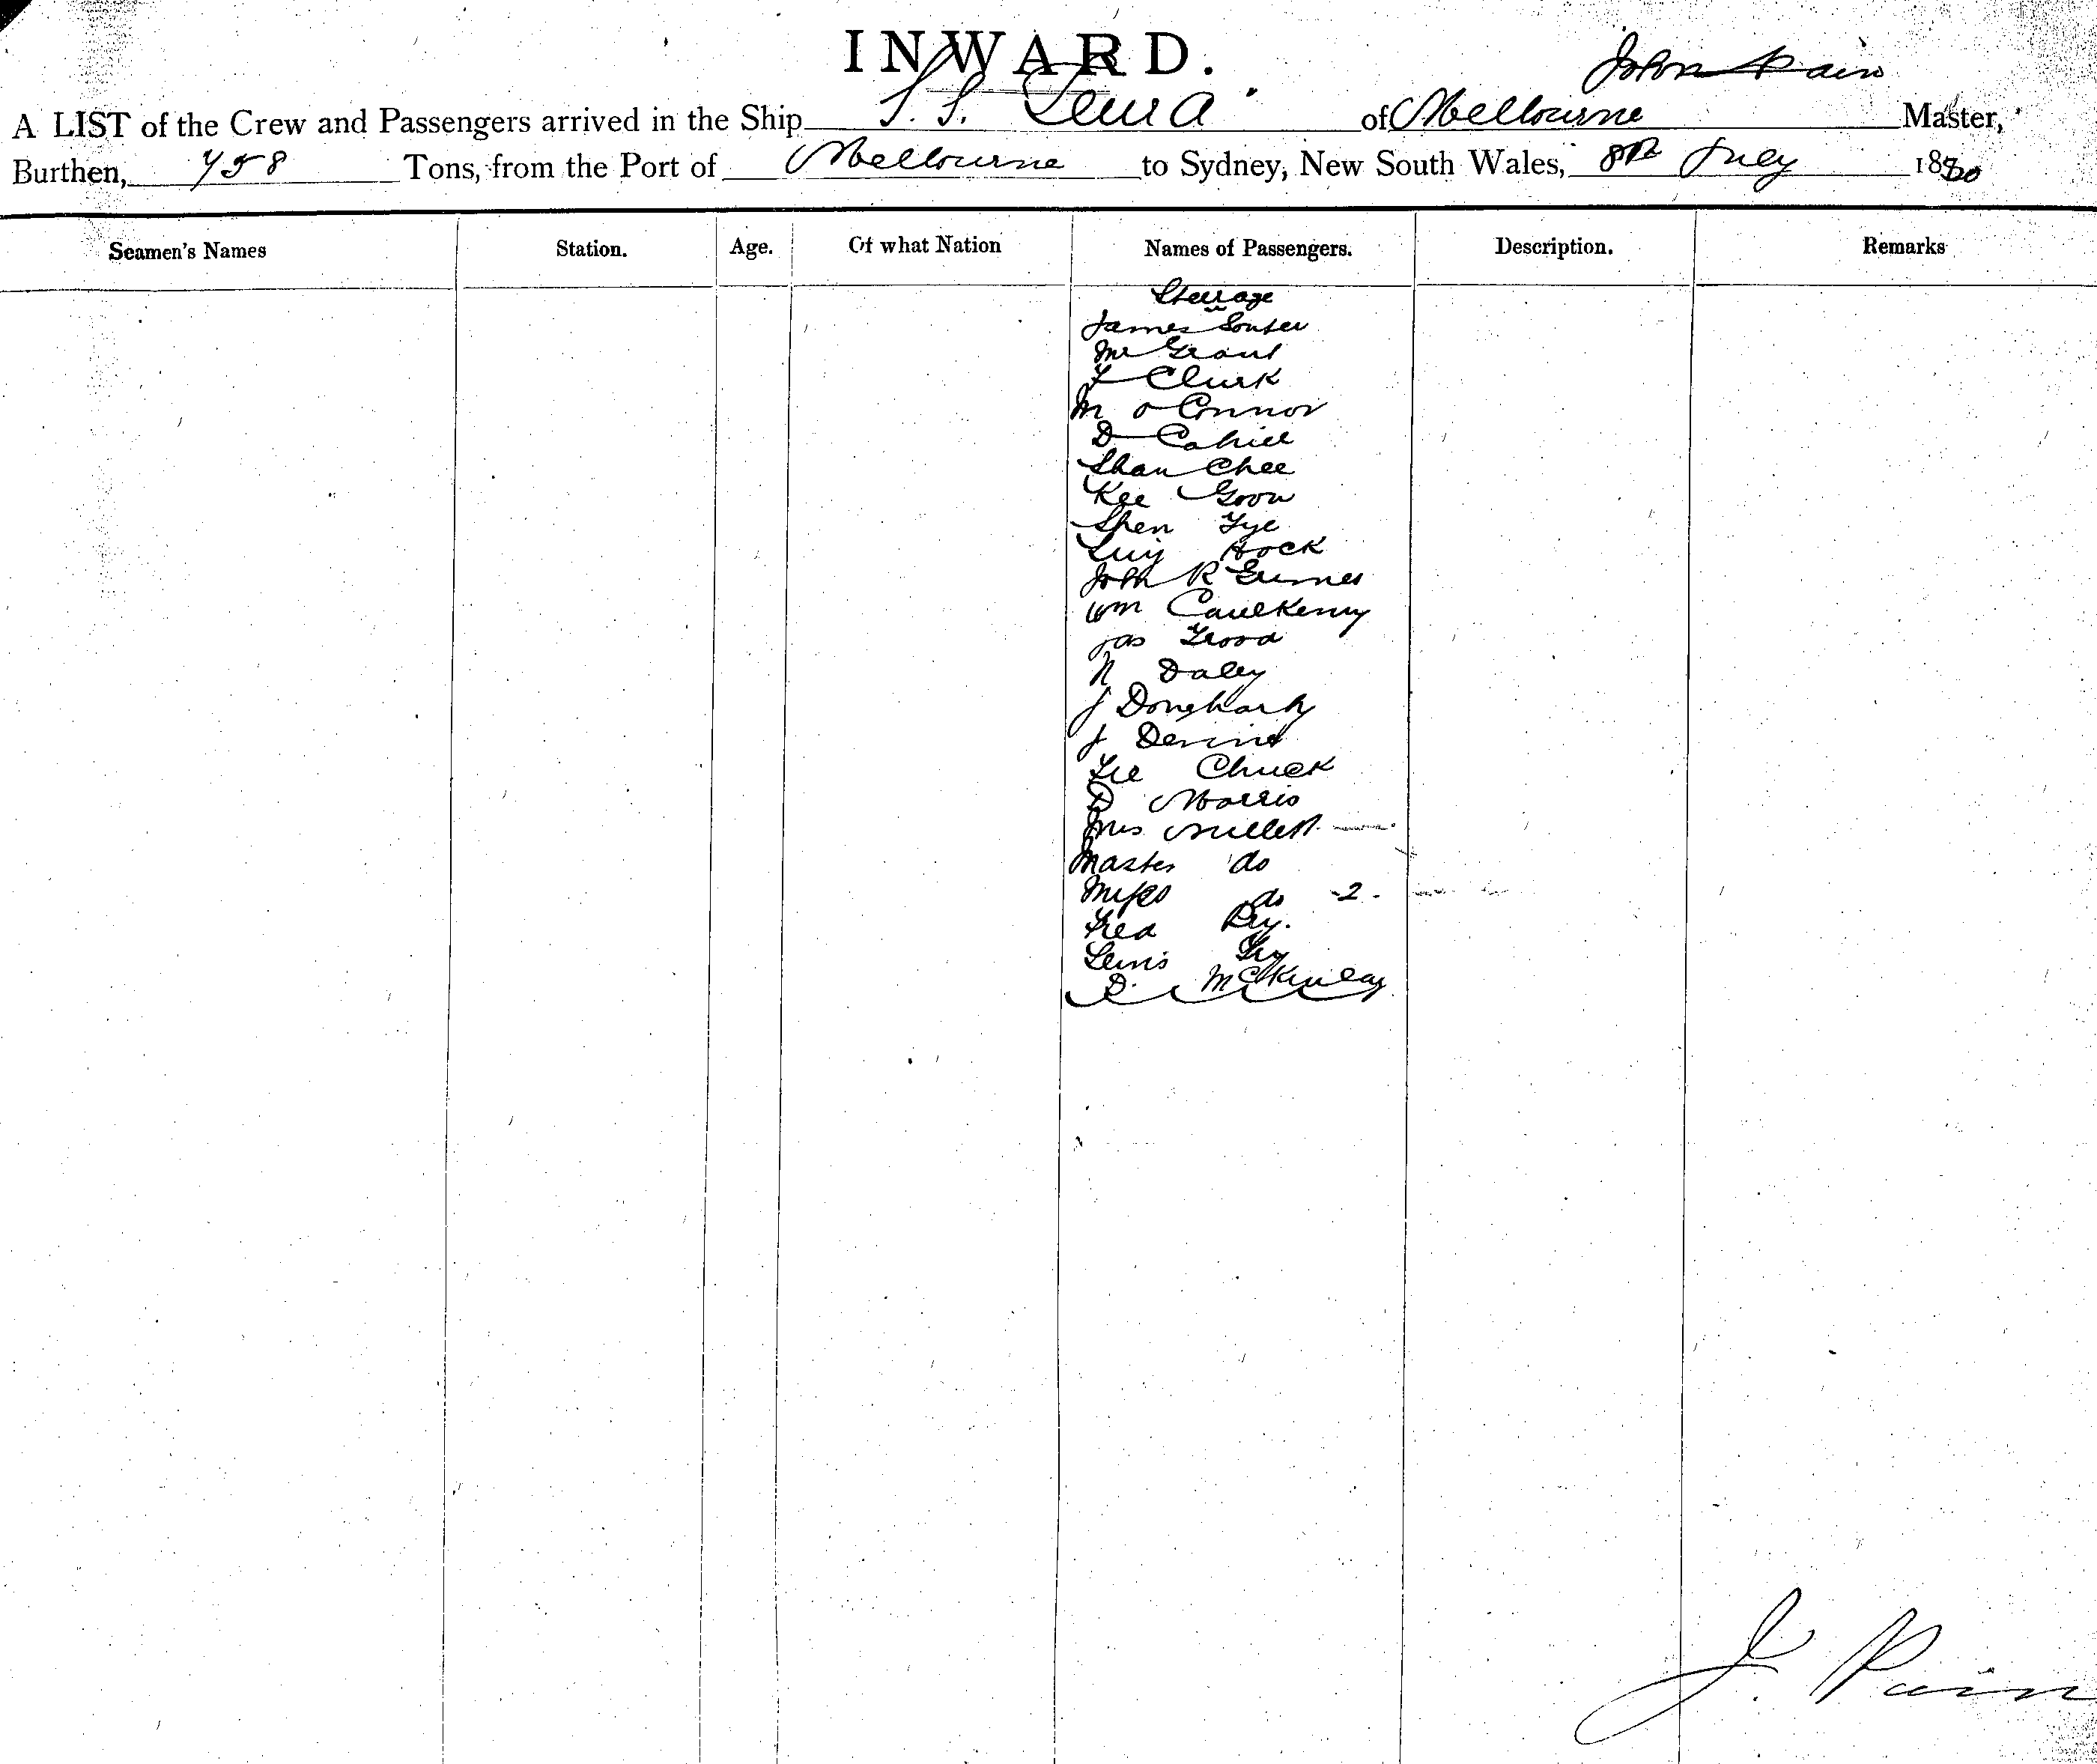 INWARD.
John Pain
A LIST of the Crew and Passengers arrived in the Ship S. S. of Melbourne Master,
Burthen, 758 Tons, from the Port of Melbourne to Sydney, New South Wales, 8th July 1880
Seamen's Names Station. Age. Of what Nation Names of Passengers. Description. Remarks
Steerage
James Souter
Mr Grant
Clark
M O Connor
D Cahill
Shan Chee
Kee Goon
Shen Tye
Luiy Hock
John R
Wm
Jas
N Daley
J Donehark
J Devine
Lee Chuck
D Morris
Mrs Millett
Master do
Miss do -2-
Fred
Lewis
D. McKinlay
J. Pain